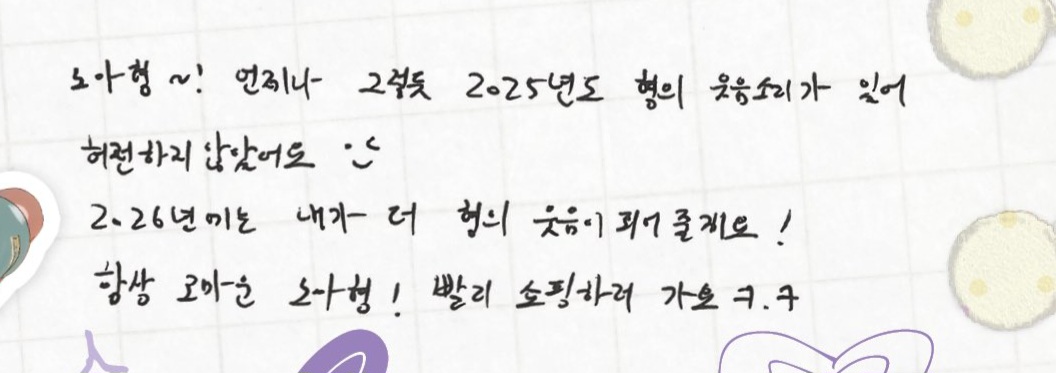 노아형 ~! 언제나 그렇듯 2025년도 형의 웃음소리가 있어
허전하지 않았어요 :)
2026년에는 내가 더 형의 웃음이 되어 줄게요!
항상 고마운 노아형! 빨리 쇼핑하러 가요 ㅋ.ㅋ